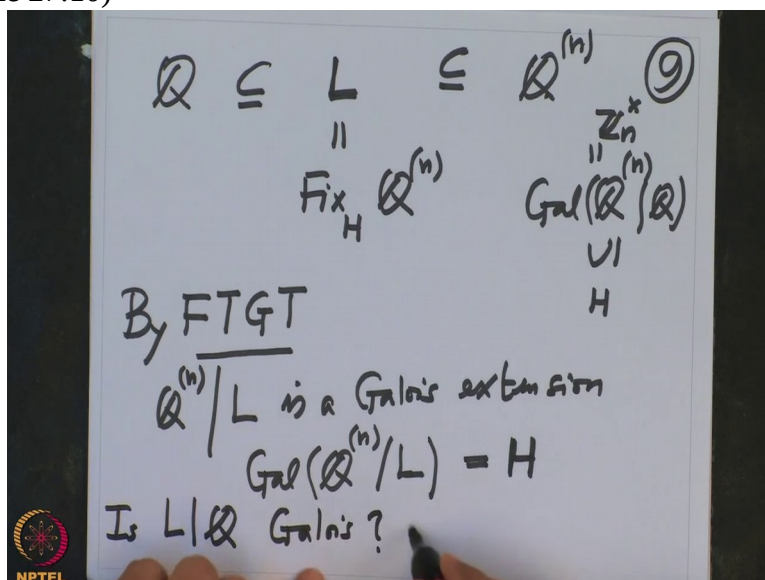 ℚ ⊆ L ⊆ ℚ⁽ⁿ⁾ ⑨
|| ℤₙˣ
Fix_H ℚ⁽ⁿ⁾ ||
Gal(ℚ⁽ⁿ⁾|ℚ)
∪|
H
By FTGT
ℚ⁽ⁿ⁾|L is a Galois extension
Gal(ℚ⁽ⁿ⁾/L) = H
Is L|ℚ Galois?
NPTEL